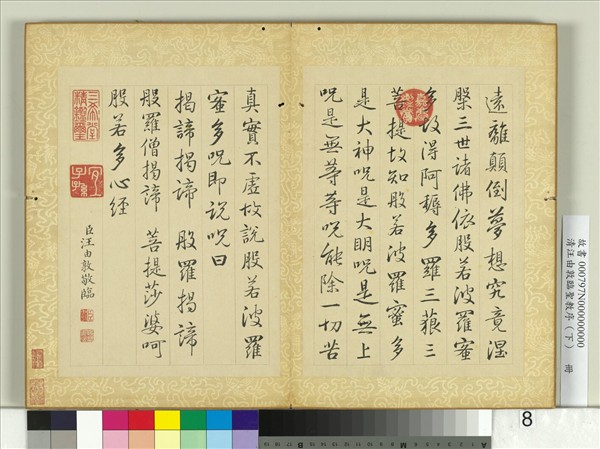 故書 000797N000000000
清汪由敦臨聖教序(下) 冊
遠離顛倒夢想究竟涅
槃三世諸佛依般若波羅蜜
多故得阿耨多羅三藐三
菩提故知般若波羅蜜多
是大神呪是大明呪是無上
呪是無等等呪能除一切苦
真實不虛故說般若波羅
蜜多呪即說呪曰
揭諦揭諦 般羅揭諦
般羅僧揭諦 菩提莎婆呵
般若多心經
臣汪由敦敬臨
三希堂精鑑璽
宜子孫
8